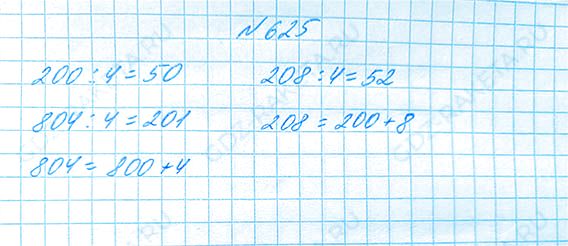 № 625
200 : 4 = 50
208 : 4 = 52
804 : 4 = 201
208 = 200 + 8
804 = 800 + 4